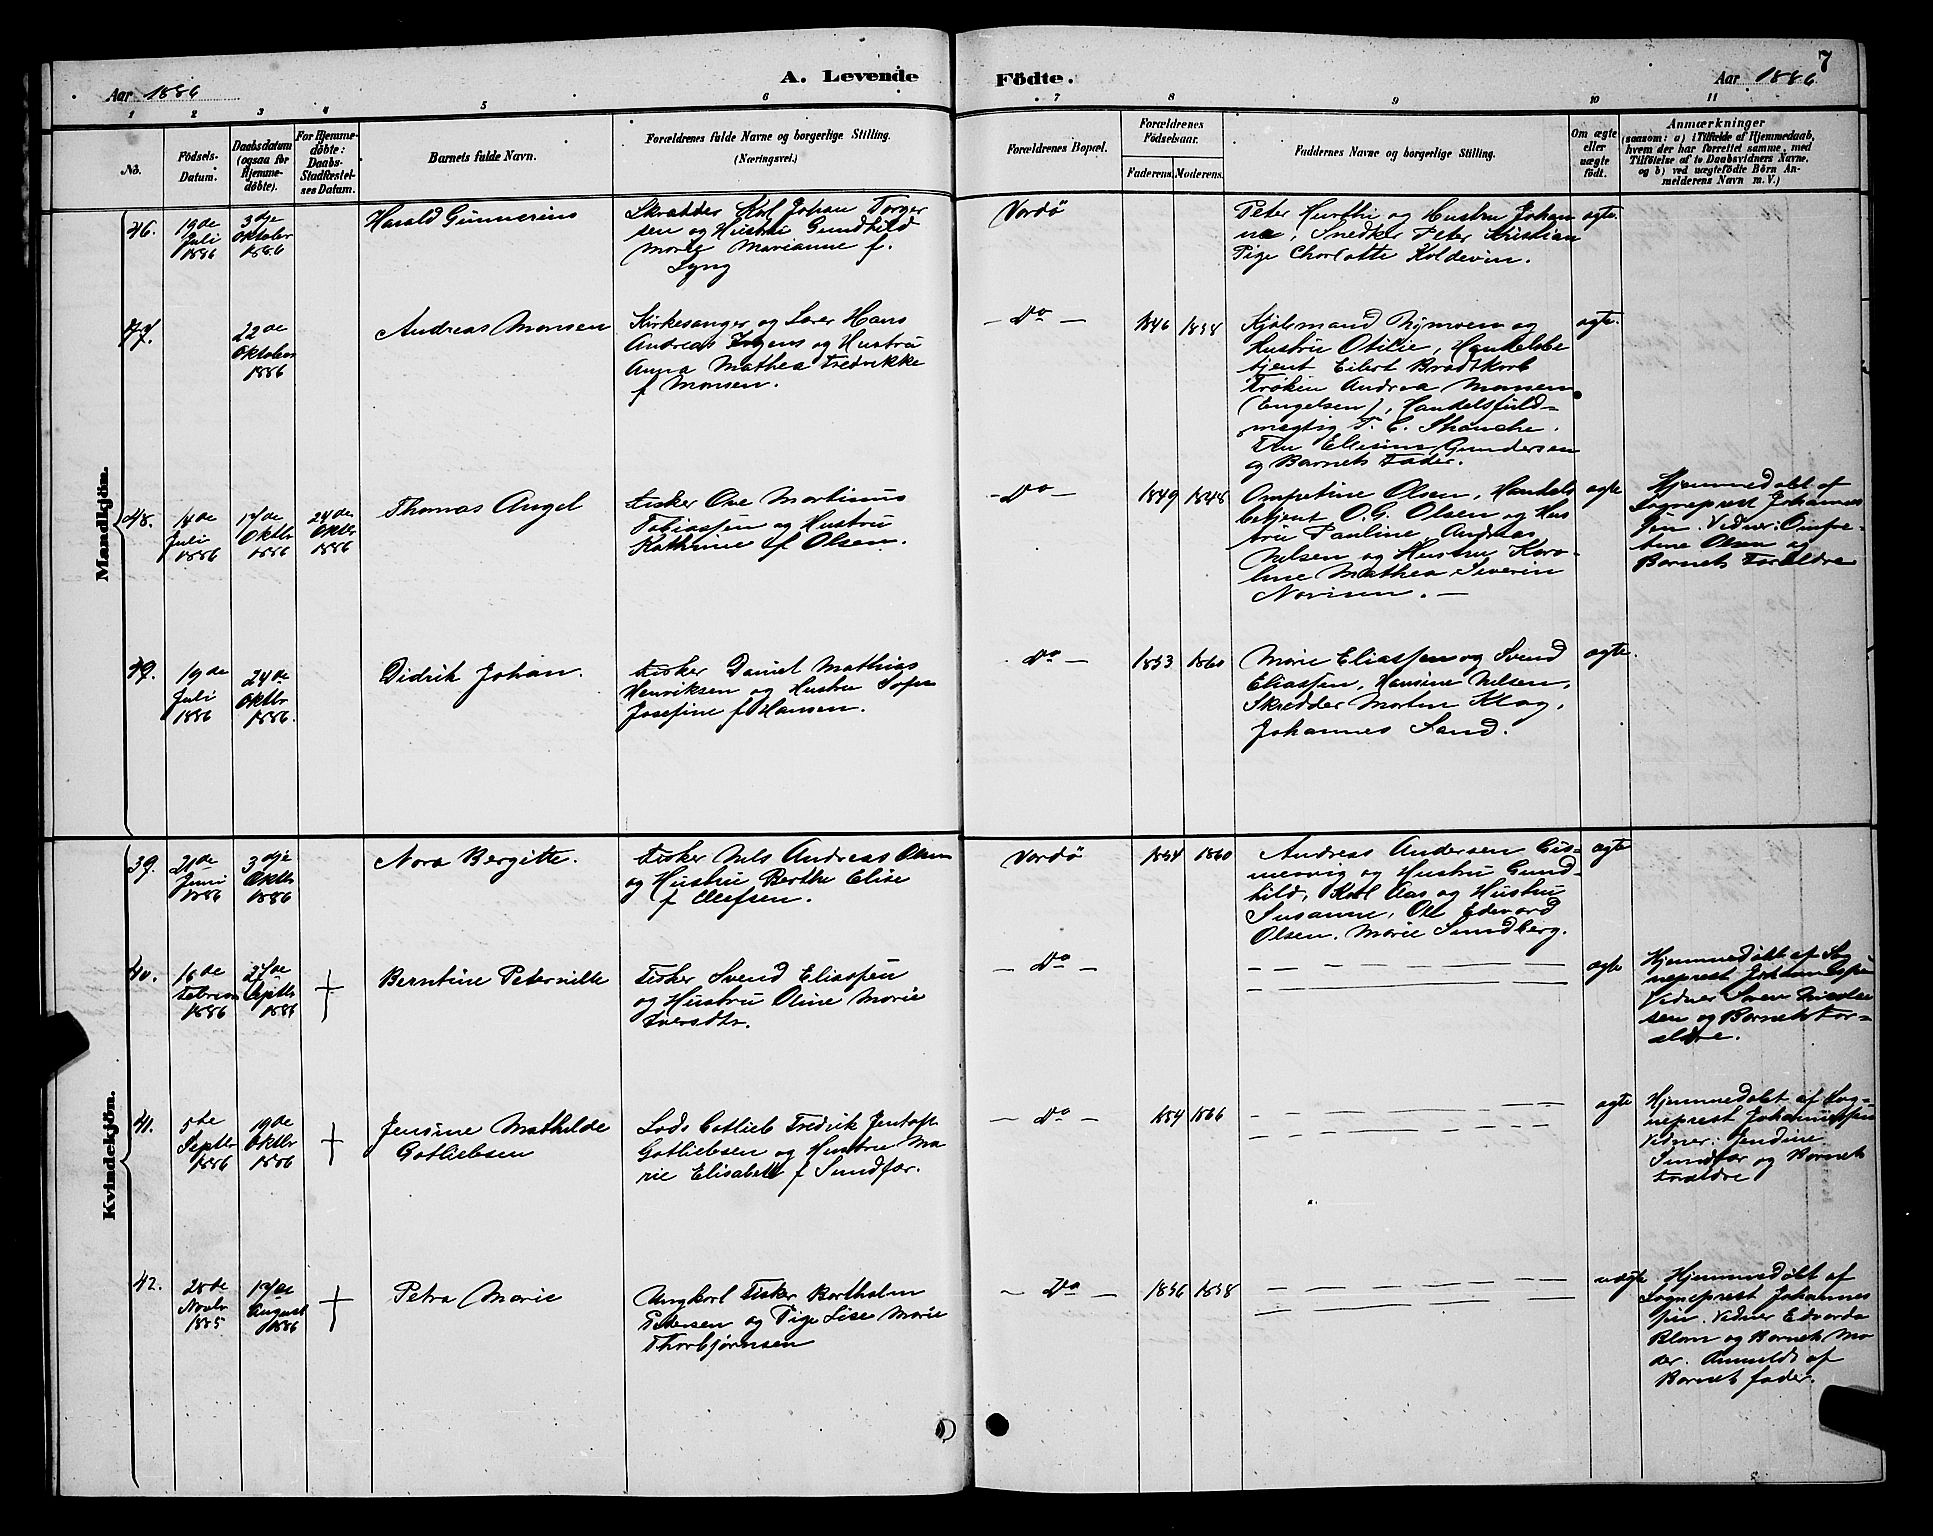 A. Levende Födte.
7
Aar 1886
Aar 1886
1 2 3 4 5 6 7 8 9 10 11
No.
Födsels-
Datum.
Daabsdatum
(ogsaa for
Hjemme-
döbte).
For Hjemme-
döbte:
Daabs-
Stadfæstel-
ses Datum.
Barnets fulde Navn.
Forældrenes fulde Navne og borgerlige Stilling.
(Næringsvei.)
Forældrenes Bopæl.
Forældrenes
Födselsaar.
Faderens. Moderens.
Faddernes Navne og borgerlige Stilling.
Om ægte
eller
uægte
födt.
Anmærkninger
(saasom: a) i Tilfælde af Hjemmedaab,
hvem der har forrettet samme, med
Tilföielse af to Daabsvidners Navne.
og b) ved uægtefödte Börn An-
melderens Navn m. V.)
Mandkjön.
46.
19de
Juli
1886
3dje
Oktober
1886
Harald Gunnerius
Skrædder Karl Johan Torger
sen og Hustru Gundhild
Marie Marianne f.
Lyng
Vardö
Peter Hurthi og Hustru Johan
ne, Snedker Peter Kristian
Pige Charlotte Koldevin.
ægte.
47.
22de
Oktober
1886
Andreas Monsen
Kirkesanger og Lærer Hans
Andreas og Hustru
Anna Mathea Fredrikke
f Monsen.
- Do -
1846 1858
Kjøbmand og
Hustru Otilie, Handelsbe
tjent Eilert Bradtkorb
Frøken Andrea Monsen
(Engelsen), Handelsfuld-
mægtig T. C. Skanche.
Fru Elisine Gundersen
og Barnets Fader.
ægte.
48.
14de
Juli
1886
17de
Oktbr
1886
24de
Oktbr
1886
Thomas Angel
Fisker Ove Martinus
Tobiassen og Hustru
Kathrine f Olsen.
- Do -
1849 1848
Olsen, Handels
betjent O. G. Olsen og Hus
tru Pauline, Andreas
Nilsen og Hustru Karo-
line Mathea Severin
ægte
Hjemmedøbt af
Sogneprest Johannes
sen. Vidner:
Olsen og
Barnets Forældre
49.
19de
Juli
1886
24de
Oktbr
1886.
Didrik Johan.
Fisker Daniel Mathias
Henriksen og Hustru Sofie
Josefine f Hansen.
- Do -
1853 1860
Marie Eliassen og Svend
Eliassen, Hansine Nilsen,
Skrædder Morten Klog,
Johannes Sand.
ægte.
Kvindekjön.
39.
21de
Juni
1886
3dje
Oktbr
1886
Nora Bergitte.
Fisker Nils Andreas Olsen
og Hustru Berthe Elise
f Olufsen.
Vardö
1854 1860
Andreas Andersen
og Hustru Gund-
hild, Karl Aas og Hustru
Susanne, Ole Edvard
Olsen. Marie Sundberg.
ægte
40.
16de
Februar
1886
27de
Septbr
1886
+
Berntine Peternille
Fisker Svend Eliassen
og Hustru Oline Marie
Iversdtr.
- Do -
ægte
Hjemmedøbt af Sog
neprest Johannessen
Vidner Soren Nicolai
sen og Barnets For-
ældre.
41.
5te
Septbr
1886
19de
Oktbr
1886
+
Jensine Mathilde
Gotliebsen
Lods Gotlieb Fredrik Jentoft
Gotliebsen og Hustru Ma
rie Elisabeth f Sundfær.
- Do -
1854 1866
ægte
Hjemmedøbt af Sog-
neprest Johannessen
Vidner: Jendine
Sundfær og Barnets
Forældre
42.
28de
Novbr
1885
17de
August
1886
+
Petra Marie
Ungkarl Fisker Bartholm
Pedersen og Pige Lise Marie
Thorbjørnsen
- Do -
1856 1858
uægte
Hjemmedøbt af
Sogneprest Johannes
sen. Vidner Edvarda
Blom og Barnets Mo
der. Anmeldt af
Barnets fader.